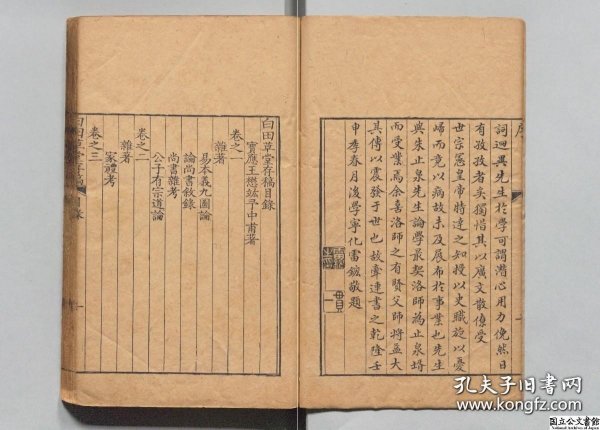 詞迴異先生於學可謂潛心用力俛然日
有孜孜者矣獨惜其以廣文散僚受
世宗憲皇帝特達之知授以史職旋以憂
歸而竟以病故未及展布於事業也先生
與朱止泉先生論學最契洛師為止泉壻
而受業焉余喜洛師之有賢父師將益大
其傳以震發于世也故牽連書之乾隆壬
申季春月後學寧化雷鋐敬題
白田草堂存稿目錄
寶應王懋竑予中甫著
卷之一
雜著
易本義九圖論
論尚書敘錄
尚書雜考
公子有宗道論
卷之二
雜著
家禮考
卷之三
白田草堂存稿
目錄
一
孔夫子旧书网
www.kongfz.com
国立公文書館
National Archives of Japan